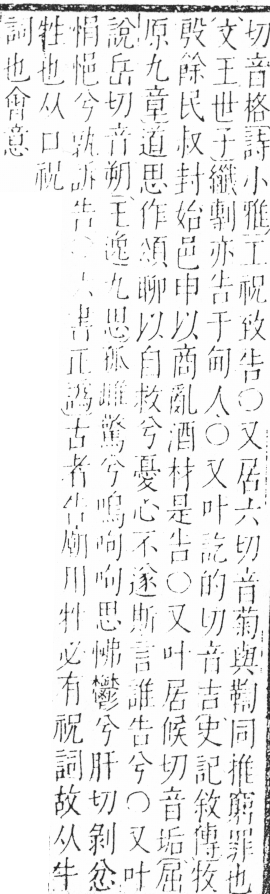 切音格詩小雅工祝致告○又居六切音菊與鞫同推窮罪也
文王世子纖剸亦告于甸人○又叶訖的切音吉史記敘傳牧
殷餘民叔封始邑申以商亂酒材是告○又叶居候切音垢屈
原九章道思作頌聊以自救兮憂心不遂斯言誰告兮○又叶
說岳切音朔王逸九思孤雌驚兮鳴呴呴思怫鬱兮肝切剝忿
悁悒兮孰訴告○六書正譌古者告廟用牲必有祝詞故从牛
牲也从口祝
詞也會意